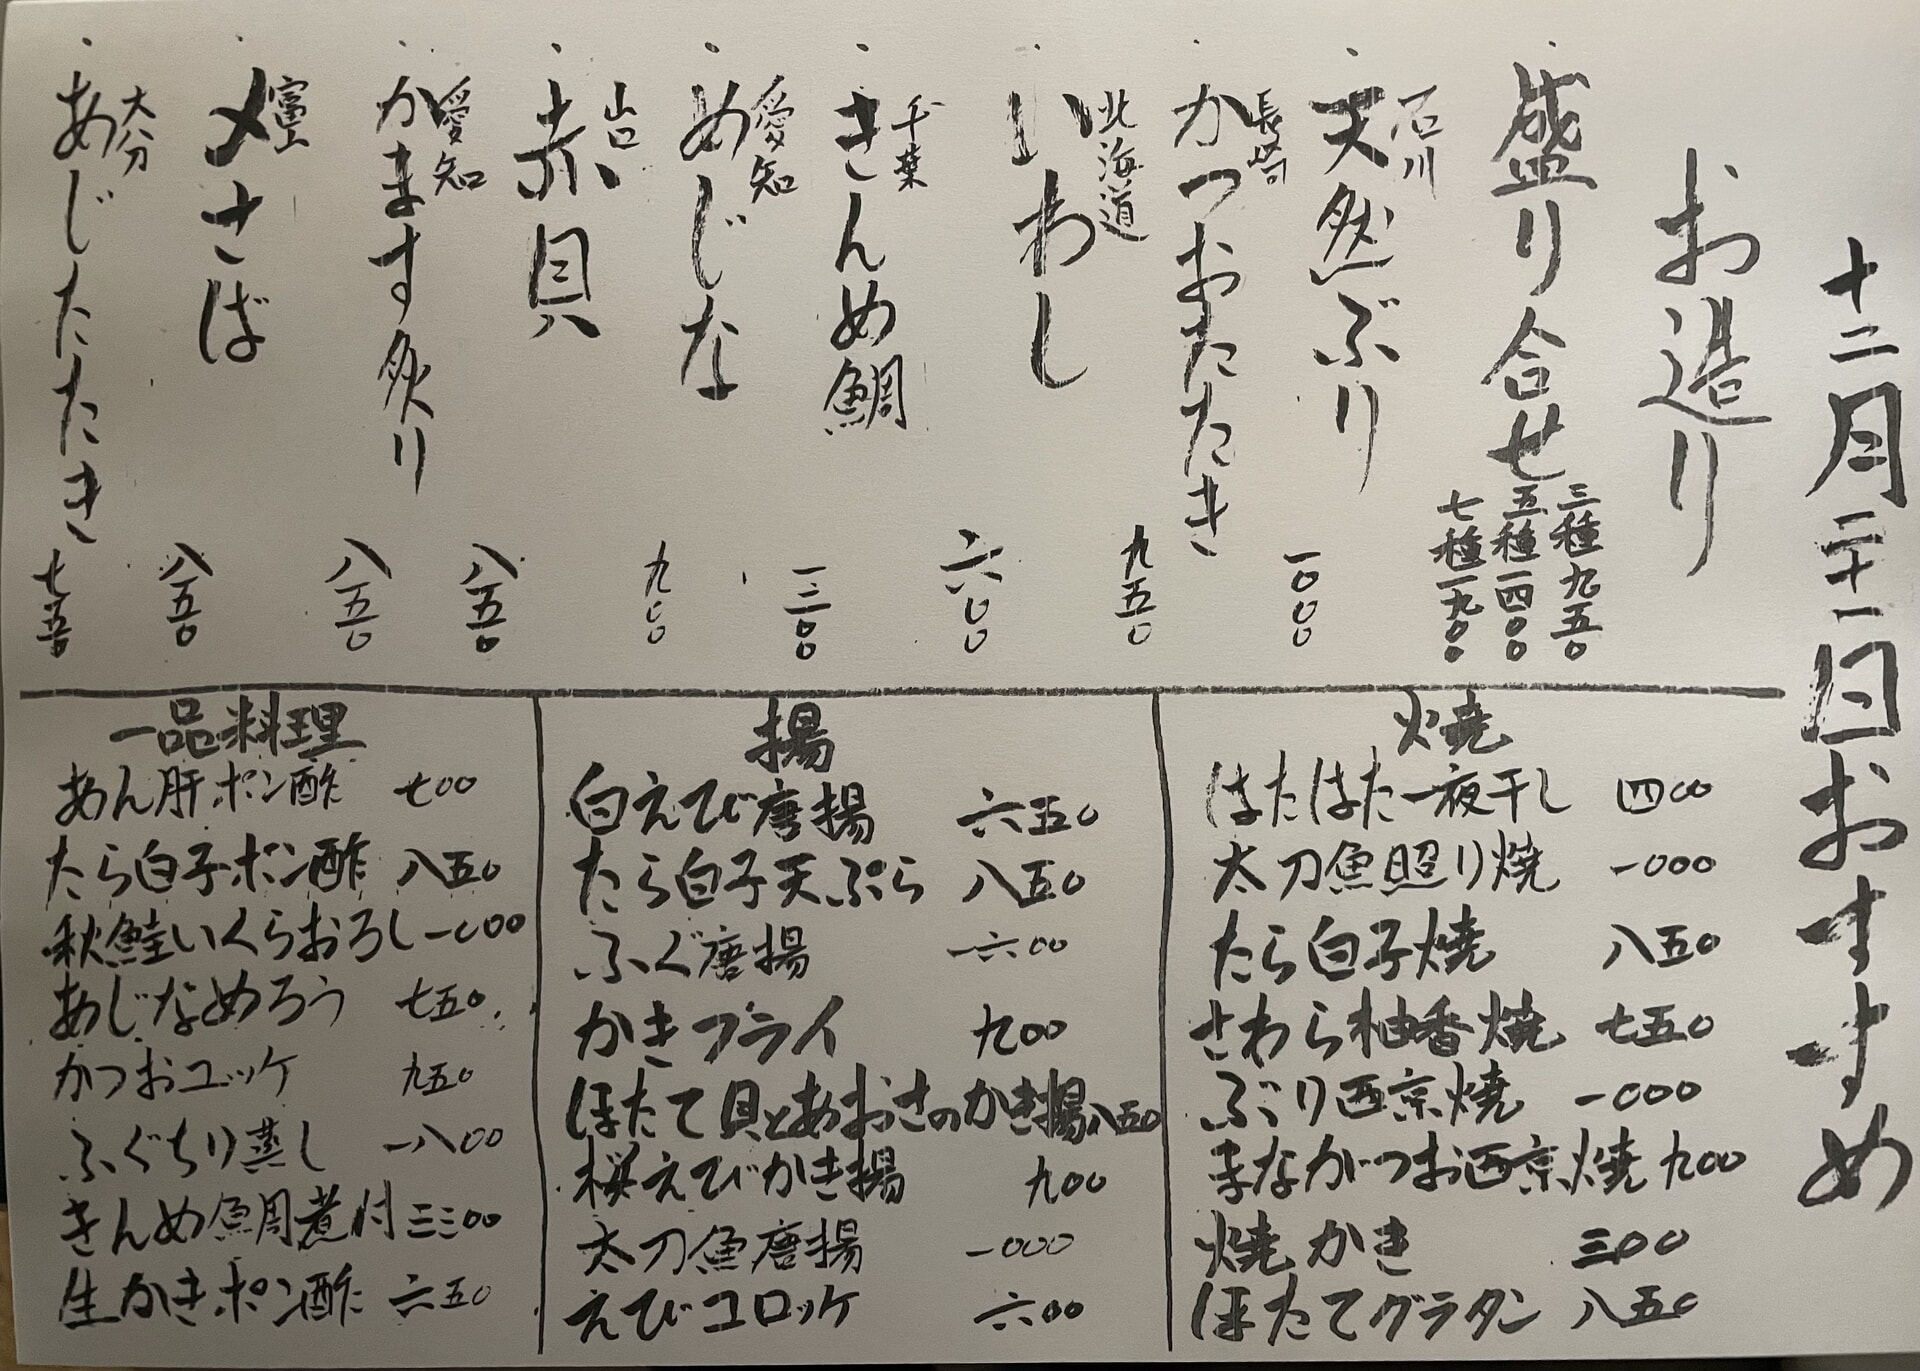 十二月二十一日おすすめ
お造り
盛り合せ 三種九五〇
五種一四〇〇
七種一九〇〇
石川 天然ぶり 一〇〇〇
長崎 かつおたたき 九五〇
北海道 いわし 六〇〇
千葉 きんめ鯛 一三〇〇
愛知 めじな 九〇〇
山口 赤貝 八五〇
愛知 かます炙り 八五〇
富山 〆さば 八五〇
大分 あじたたき 七五〇
焼
はたはた一夜干し 四〇〇
太刀魚照り焼 一〇〇〇
たら白子焼 八五〇
さわら柚香焼 七五〇
ぶり西京焼 一〇〇〇
まながつお西京焼 九〇〇
焼かき 三〇〇
ほたてグラタン 八五〇
揚
白えび唐揚 六五〇
たら白子天ぷら 八五〇
ふぐ唐揚 一六〇〇
かきフライ 九〇〇
ほたて貝とあおさのかき揚 八五〇
桜えびかき揚 九〇〇
太刀魚唐揚 一〇〇〇
えびコロッケ 六〇〇
一品料理
あん肝ポン酢 七〇〇
たら白子ポン酢 八五〇
秋鮭いくらおろし 一〇〇〇
あじなめろう 七五〇
かつおユッケ 九五〇
ふぐちり蒸し 一八〇〇
きんめ鯛煮付 三三〇〇
生かきポン酢 六五〇